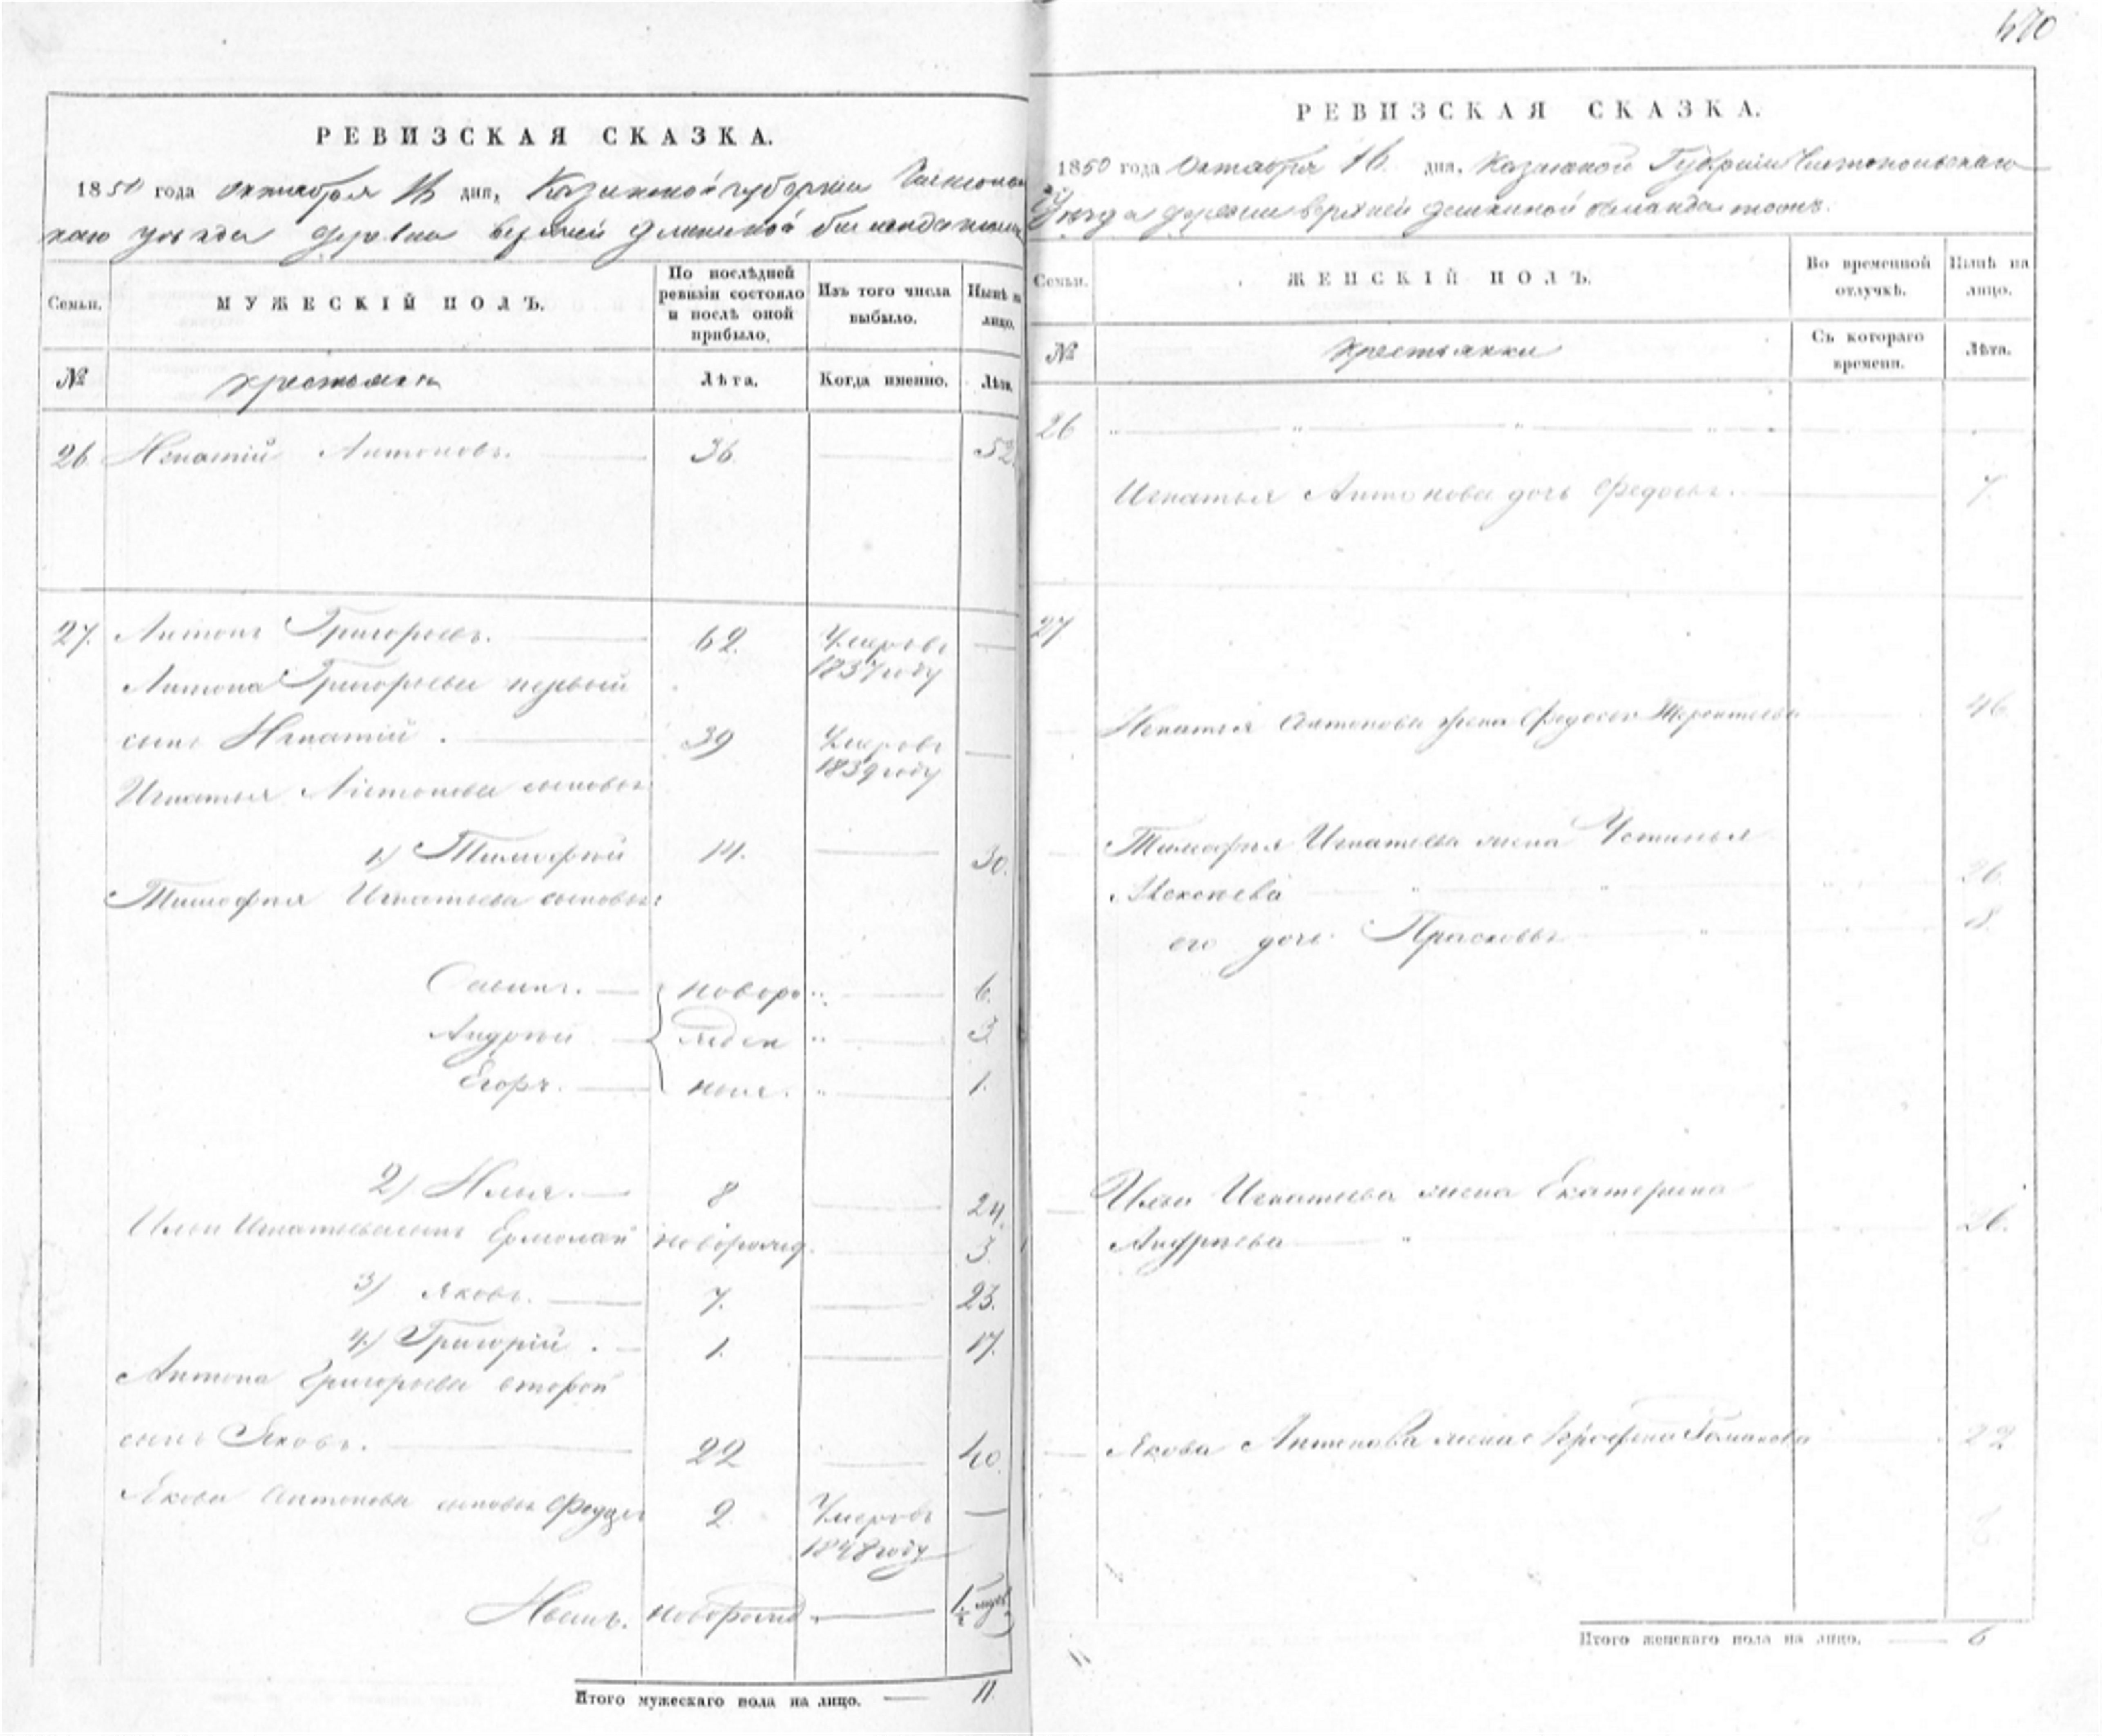 470
РЕВИЗСКАЯ СКАЗКА.
1850 года октября 16 дня, Казанской губернии
уезда деревни верхней
Семьи.
МУЖЕСКІЙ ПОЛЪ.
По послѣдней ревизіи состояло и послѣ оной прибыло.
Изъ того числа выбыло.
Нынѣ на лицо.
№
крестьяне
Лѣта.
Когда именно.
Лѣта.
26. Игнатій Антоновъ. 36. 52.
27. Антонъ Григорьевъ. 62. Умеръ въ
1837 году
Антона Григорьева первый
сынъ Игнатій. 39 Умеръ въ
1839 году
Игнатья Антонова сыновья
1) Тимофей 14. 30.
Тимофея Игнатьева сыновья:
новоро 6.
Андрей жден 3.
Егоръ. ныя. 1.
2) Илья. 8 24.
Ильи Игнатьева сынъ Ермолай новорожд. 3.
3) Яковъ. 7. 23.
4) Григорій. 1. 17.
Антона Григорьева второй
сынъ Яковъ. 22 40.
Якова Антонова сыновья 2 Умеръ въ
1848 году
новорожд
Итого мужескаго пола на лицо. 11.
РЕВИЗСКАЯ СКАЗКА.
1850 года Октября 16 дня, Казанской Губерніи Чистопольскаго
Уезда деревни верхней
Семьи.
ЖЕНСКІЙ ПОЛЪ.
Во временной отлучкѣ.
Нынѣ на лицо.
№
крестьянки
Съ котораго времени.
Лѣта.
26
Игнатья Антонова дочь Федосья. 7.
27
Игнатья Антонова жена Федосья Терентьева 46
Тимофея Игнатьева жена Устинья
Алексеева 26.
его дочь Прасковья 8.
Ильи Игнатьева жена Екатерина
Андреева 26.
Якова Антонова жена 22
Итого женскаго пола на лицо. 6